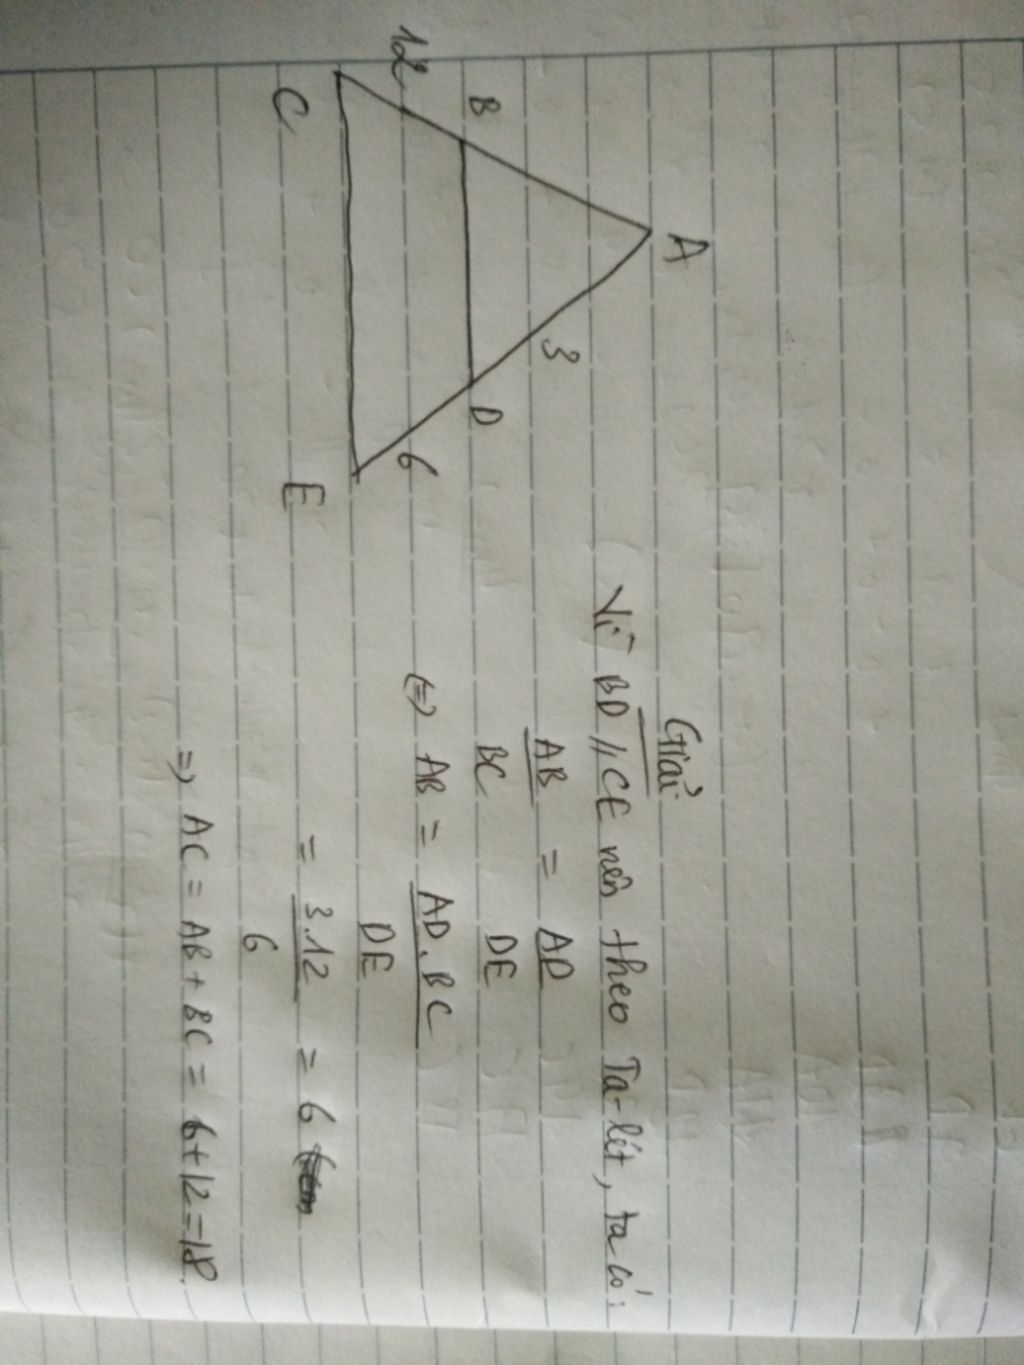 A
3
B
D
12
6
C
E
Giải
Vì BD // CE nên theo Ta-lét, ta có:
AB = AD
BC DE
(=) AB = AD.BC
DE
= 3.12 = 6
6
=) AC = AB + BC = 6+12=18.